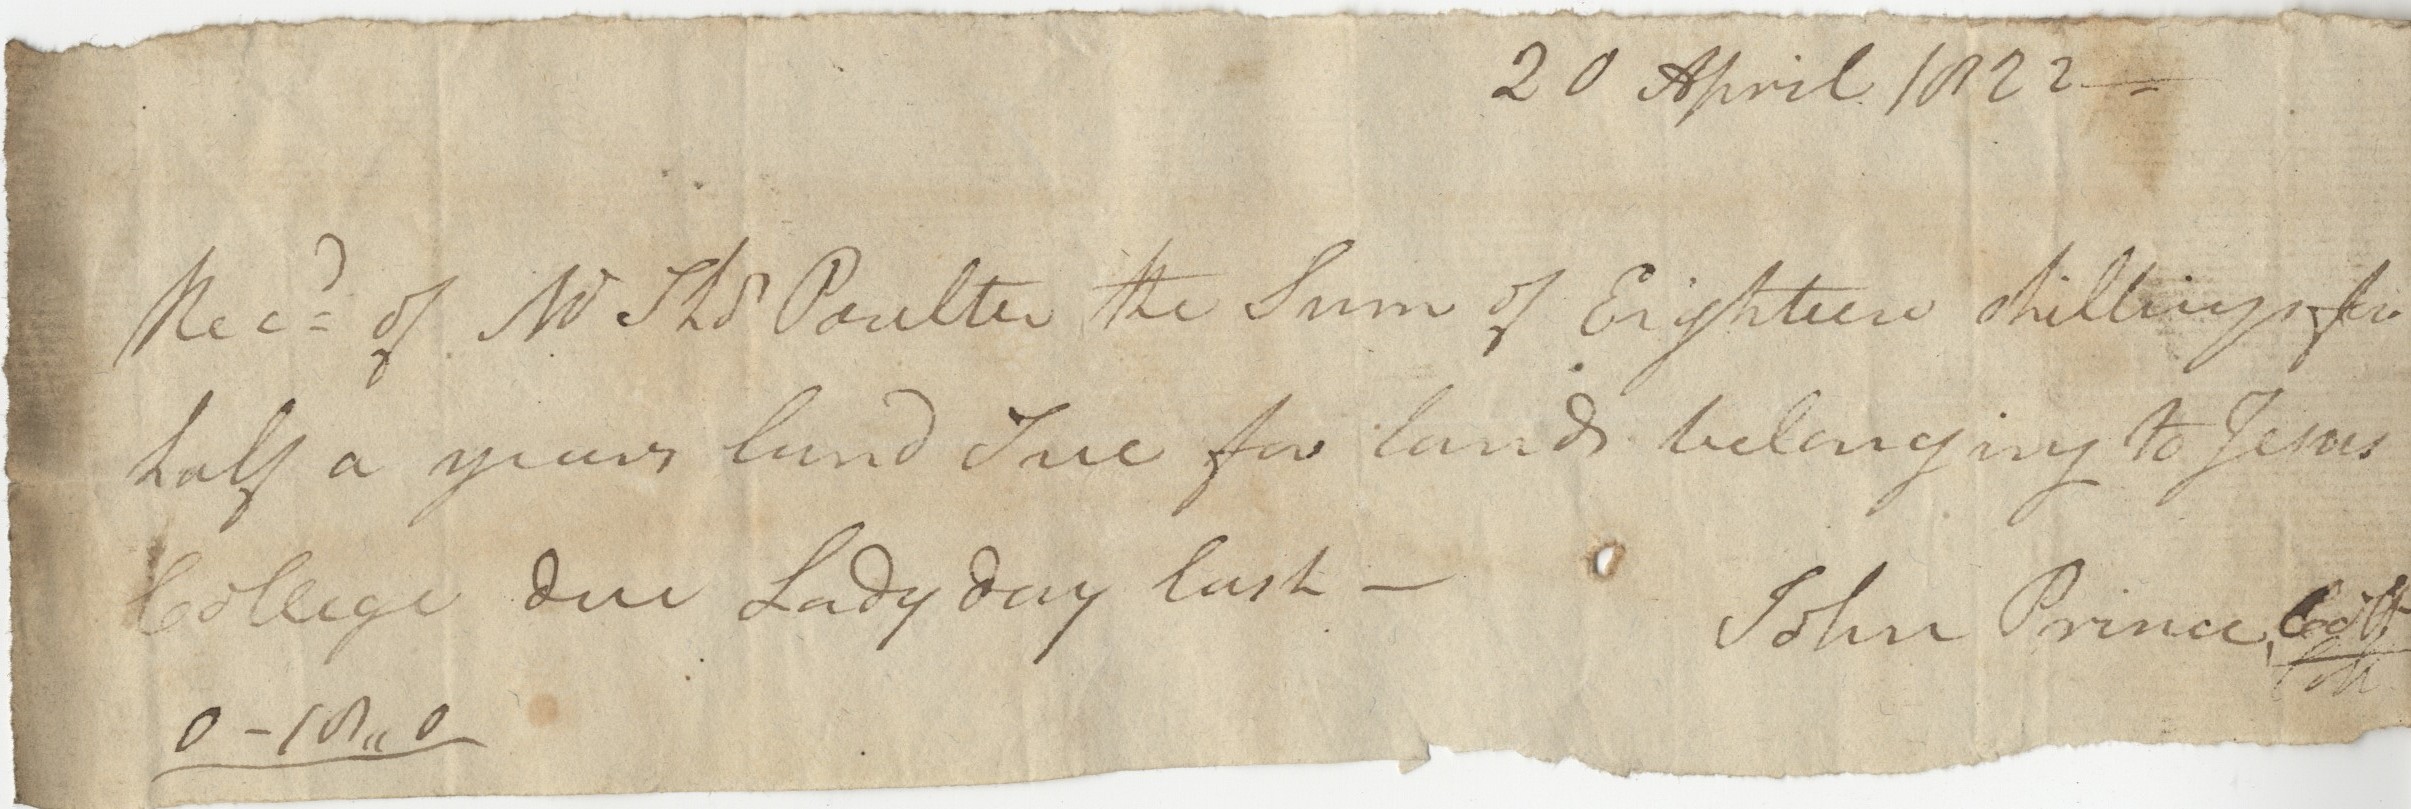 20 April 1822
Recd of Mr Thos Poulter the Sum of Eighteen shillings for
half a years land Due for lands belonging to Jesus
College due Lady day last —
John Prince
Coll
0 - 18 " 0